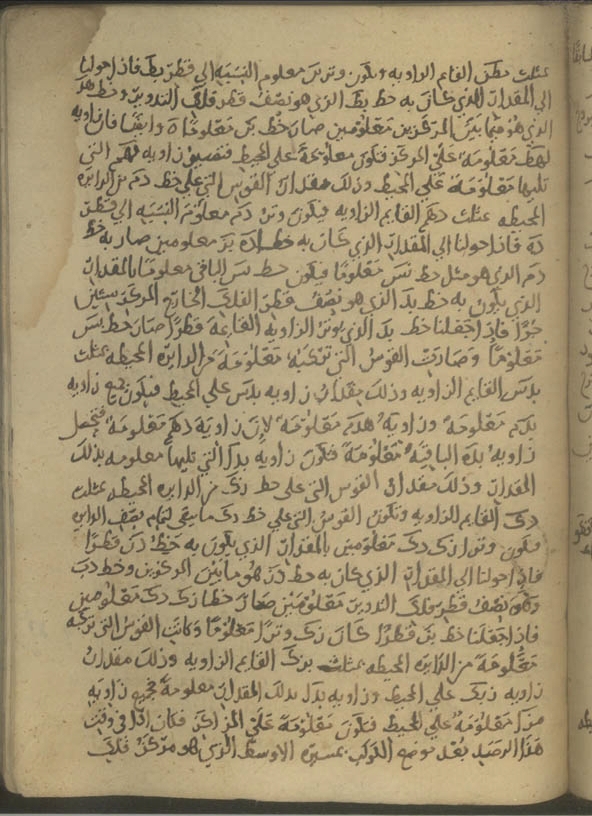 بمثلث بطن القايم الزاويه ويكون وترين معلوم النسبه الي قطر بط فاذا حولنا
الي المقدار الذي كان به خط بط الذي هو نصف قطر فلك التدوير وخط هد
الذي هو فيما بين المركزين معلومين صار خط بن معلوما ه وايضا فان زاويه
معلومه علي المركز فتكون معلومة علي المحيط فتصير زاويه التي
تليها معلومة علي المحيط وذلك مقدار القوس التي علي خط دم من الدايره
المحيطه بمثلث دهم القايم الزاويه فيكون وتر دم معلوم النسبه الي قطر
ده فاذا حولنا الي المقدار الذي كان به خطا ده بر معلومين صار به خط
دم الذي هو مثل خط نس معلوما فيكون خط سر الباقي معلوما بالمقدار
الذي يكون به خط بد الذي هو نصف قطر الفلك الخارج المركز ستين
جزا فاذا جعلنا خط بد الذي يوتر الزاويه القايمة قطرا صار خط بس
معلوما وصارت القوس التي تركبه معلومة من الدايره المحيطه بمثلث
بدس القايم الزاويه وذلك مقدار زاويه بدس علي المحيط فيكون جميع زاويه
بدم معلومه وزاويه هدم معلومه لان زاوية دهم معلومه فتحصل
زاويه بده الباقيه معلومة فتكون زاويه بدا التي تليها معلومه بذلك
المقدار وذلك مقدار القوس التي علي خط زك من الدايره المحيطه بمثلث
درك القايم الزاويه وتكون القوس التي علي خط دك ما يبقي لتمام نصف الدايره
فيكون وترا زك دك معلومين بالمقدار الذي يكون به خط در قطرا
فاذا حولنا الي المقدار الذي كان به خط در هو ما بين المركزين وخط دب
وهو نصف قطر فلك التدوير معلومين صار خطا زك دك معلومين
فاذا جعلنا خط بز قطرا كان زك وترا معلوما وكانت القوس التي تركبه
معلومة من الدايره المحيطه بمثلث بزك القايم الزاويه وذلك مقدار
زاويه زبك علي المحيط وزاويه بدا بذلك المقدار معلومة فجميع زاويه
معلومه علي المحيط فتكون معلومة علي المركز فكان اذا في وقت
هذا الرصد بعد موضع الكوكب بمسيره الاوسط الذي هو مركز فلك